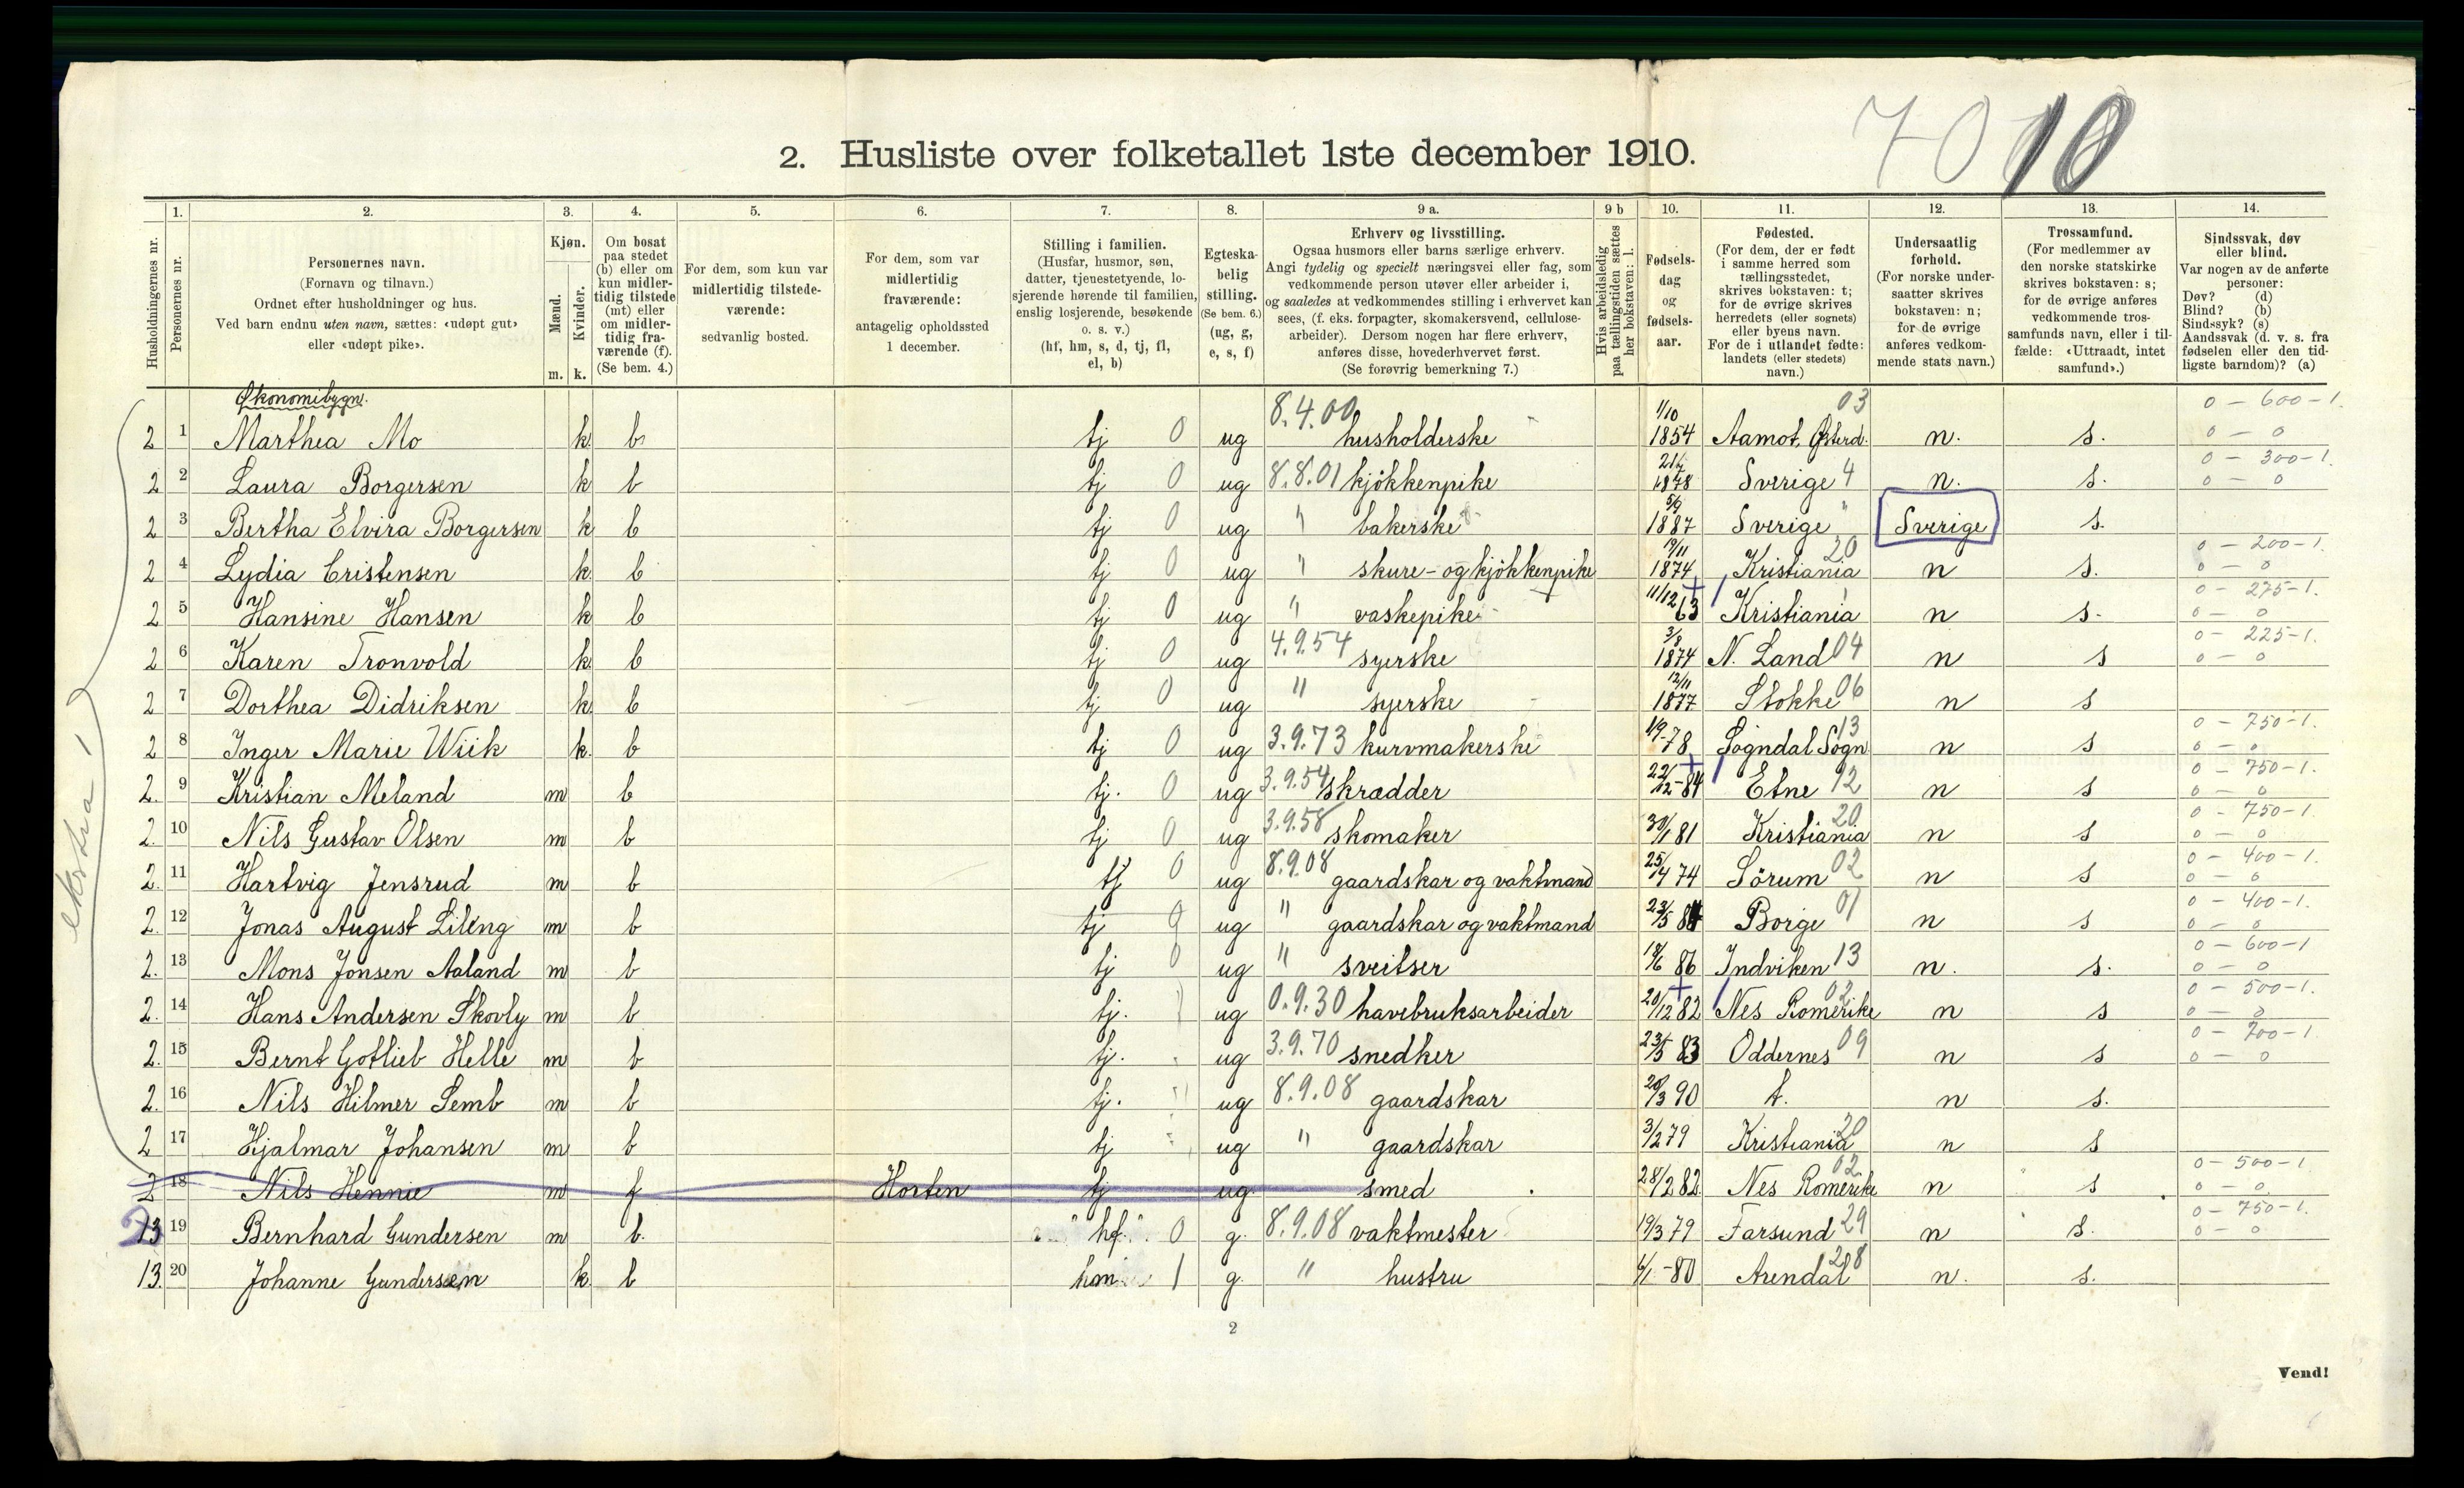 70 10
2. Husliste over folketallet 1ste december 1910.
1. 2. 3. 4. 5. 6. 7. 8. 9 a. 9 b 10. 11. 12. 13. 14.
Husholdningernes nr.
Personernes nr.
Personernes navn.
(Fornavn og tilnavn.)
Ordnet efter husholdninger og hus.
Ved barn endnu uten navn, sættes: «udøpt gut»
eller «udøpt pike».
Kjøn.
Mænd.
Kvinder.
m. k.
Om bosat
paa stedet
(b) eller om
kun midler-
tidig tilstede
(mt) eller
om midler-
tidig fra-
værende (f).
(Se bem. 4.)
For dem, som kun var
midlertidig tilstede-
værende:
sedvanlig bosted.
For dem, som var
midlertidig
fraværende:
antagelig opholdssted
1 december.
Stilling i familien.
(Husfar, husmor, søn,
datter, tjenestetyende, lo-
sjerende hørende til familien,
enslig losjerende, besøkende
o. s. v.)
(hf, hm, s, d, tj, fl,
el, b)
Egteska-
belig
stilling.
(Se bem. 6.)
(ug, g,
e, s, f)
Erhverv og livsstilling.
Ogsaa husmors eller barns særlige erhverv.
Angi tydelig og specielt næringsvei eller fag, som
vedkommende person utøver eller arbeider i,
og saaledes at vedkommendes stilling i erhvervet kan
sees, (f. eks. forpagter, skomakersvend, cellulose-
arbeider). Dersom nogen har flere erhverv,
anføres disse, hovederhvervet først.
(Se forøvrig bemerkning 7.)
Hvis arbeidsledig
paa tællingstiden sættes
her bokstaven: l.
Fødsels-
dag
og
fødsels-
aar.
Fødested.
(For dem, der er født
i samme herred som
tællingsstedet,
skrives bokstaven: t;
for de øvrige skrives
herredets (eller sognets)
eller byens navn.
For de i utlandet fødte:
landets (eller stedets)
navn.)
Undersaatlig
forhold.
(For norske under-
saatter skrives
bokstaven: n;
for de øvrige
anføres vedkom-
mende stats navn.)
Trossamfund.
(For medlemmer av
den norske statskirke
skrives bokstaven: s;
for de øvrige anføres
vedkommende tros-
samfunds navn, eller i til-
fælde: «Uttraadt, intet
samfund».)
Sindssvak, døv
eller blind.
Var nogen av de anførte
personer:
Døv? (d)
Blind? (b)
Sindssyk? (s)
Aandssvak (d. v. s. fra
fødselen eller den tid-
ligste barndom)? (a)
Økonomibygn.
ekstra 1
2 1 Marthea Mo k. b tj 0 ug 8.4.00 husholderske 1/10 1854 Aamot, Østerd. 03 n. s. 0 - 600 - 1. 0 - 0
2 2 Laura Borgersen k b tj 0 ug 8.8.01 kjökkenpike 1878 Sverige 4 n. s. 0 - 300 - 1. 0 - 0
2 3 Bertha Elvira Borgersen k b tj 0 ug " bakerske 5/9 1887 Sverige " Sverige s.
2 4 Lydia Cristensen k. b tj 0 ug " skure- og kjökkenpike 19/11 1874 Kristiania 20 n s. 0 - 200 - 1. 0 - 0
2 5 Hansine Hansen k b tj 0 ug " vaskepike 11/12 63 Kristiania n s. 0 - 275 - 1. 0 - 0
2 6 Karen Tronvold k. b tj 0 ug 4.9.54 syerske 3/8 1874 N. Land 04 n s 0 - 225 - 1. 0 - 0
2 7 Dorthea Didriksen k. b tj 0 ug " syerske 12/11 1877 Stokke 06 n s
2 8 Inger Marie Wiik k. b tj 0 ug 3.9.73 kurvmakerske 1/9-78 Sogndal Sogn 13 n s 0 - 750 - 1. 0 - 0
2. 9 Kristian Meland m b tj. 0 ug 3.9.54 skrædder 22/12-84 Etne 12 n s 0 - 750 - 1. 0 - 0
2. 10 Nils Gustav Olsen m b tj 0 ug 3.9.58 skomaker 30/1 81 Kristiania 20 n s 0 - 750 - 1. 0 - 0
2. 11 Hartvig Jensrud m b tj 0 ug 8.9.08 gaardskar og vaktmand 25/4 74 Sörum 02 n s 0 - 400 - 1. 0 - 0
2. 12 Jonas August Lileng m b tj 0 ug " gaardskar og vaktmand 23/5 84 Borge 01 n s 0 - 400 - 1. 0 - 0
2. 13 Mons Jonsen Aaland m b tj 0 ug " sveitser 18/6 86 Indviken 13 n. s. 0 - 600 - 1 0 - 0
2. 14 Hans Andersen Skovly m b tj. ug 0.9.30 havebruksarbeider 20/12 82 Nes Romerike 02 n s 0 - 500 - 1. 0 - 0
2. 15 Bernt Gotlieb Helle m b tj. ug 3.9.70 snedker 23/5 83 Oddernes 09 n s 0 - 700 - 1 0 - 0
2. 16 Nils Hilmer Semb m b tj. ug 8.9.08 gaardskar 20/3 90 t. n s.
2 17 Hjalmar Johansen m b tj ug " gaardskar 3/2 79 Kristiania 20 n s
2 18 Nils Hennie m f Horten tj ug smed 28/2 82 Nes Romerike 02 n s 0 - 500 - 1 0 - 0
13 19 Bernhard Gundersen m b. hf. 0 g. 8.9.08 vaktmester 19/3 79 Farsund 29 n s. 0 - 750 - 1. 0 - 0
13. 20 Johanne Gundersen k. b hm 1 g. " hustru 6/1-80 Arendal 28 n. s.
2
Vend!